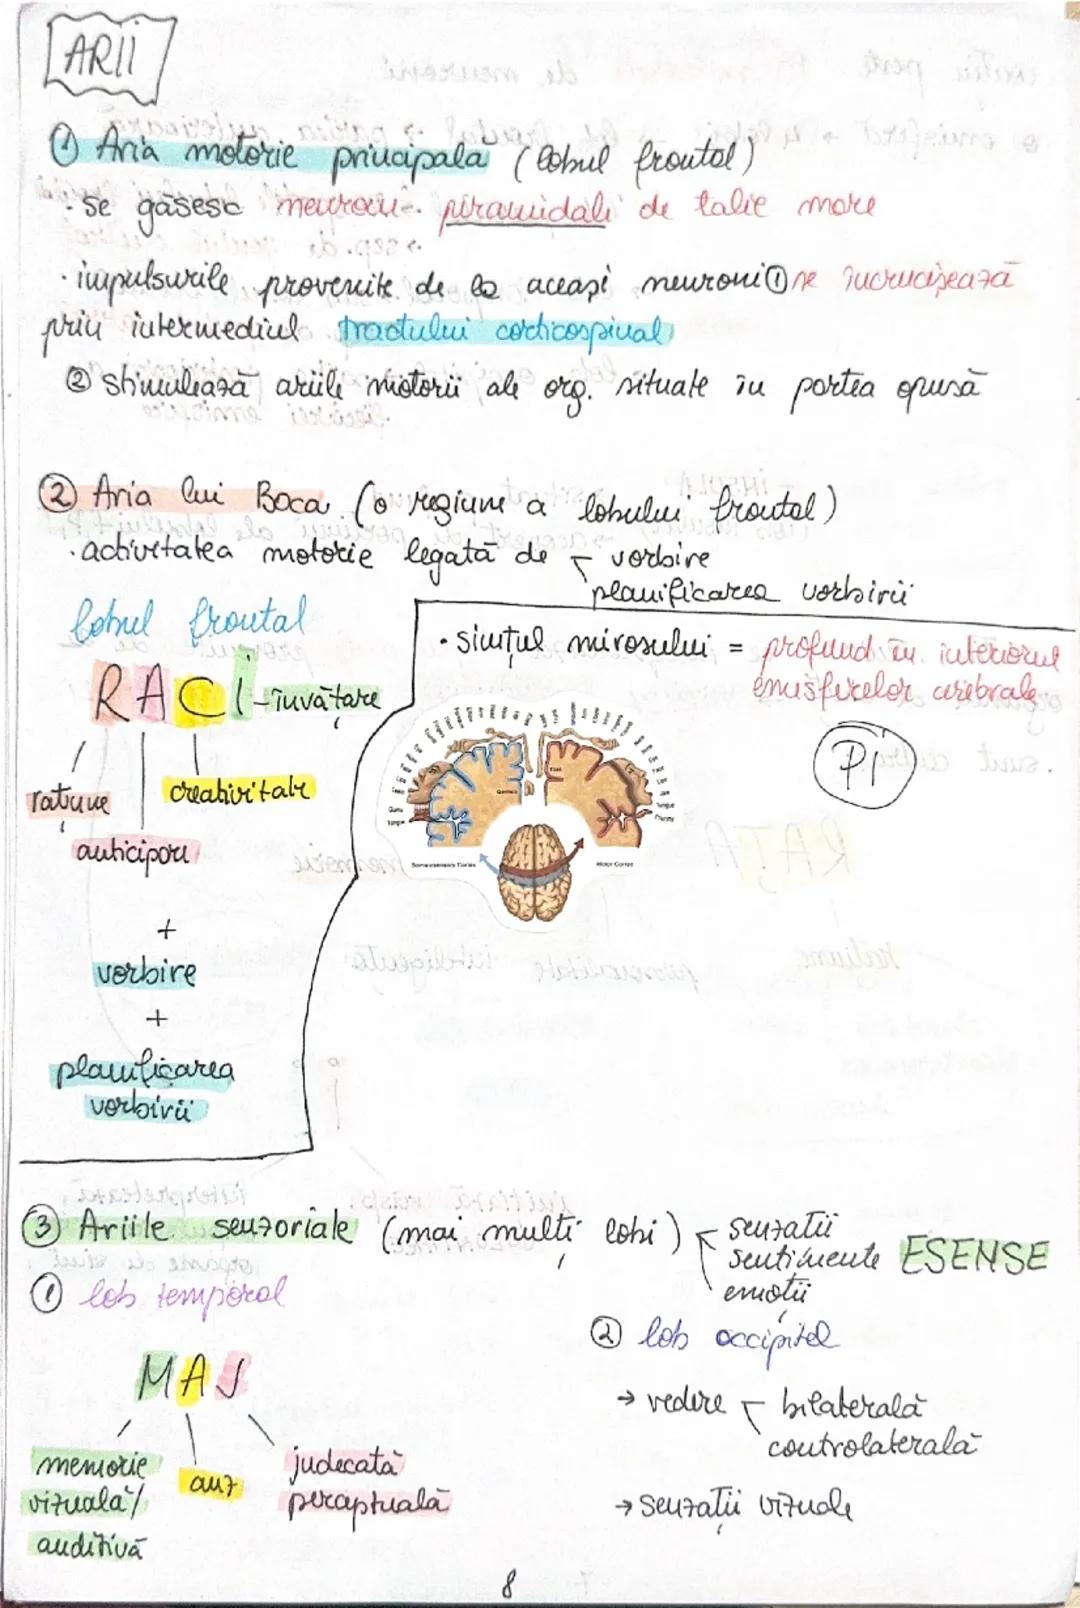 ARII
① Aria motorie principala (lobul frontal)
· se găsesc neuroni piramidali de talie mare
· impulsurile provenite de la aceași neuroni ① se încrucișează
prin intermediul tractului corticospinal
② stimulează ariile motorii ale org. situate în partea opusă
② Aria lui Boca (o regiune a lobului frontal)
· activitatea motorie legată de vorbire
planificarea vorbirii
lobul frontal
RACI - învățare
rațiune
creativitate
anticipare
+
vorbire
+
planificarea
vorbirii
· simțul mirosului = profund în interiorul
emisferelor cerebrale
PI
Somatosensory Cortex
Motor Cortex
③ Ariile senzoriale (mai mulți lobi) senzații
sentimente ESENSE
emoții
① lob temporal
MAJ
memorie
vizuală/
auditivă
auz
judecată
perceptuală
② lob occipital
→ vedere bilaterală
controlaterală
→ senzații vizuale
8